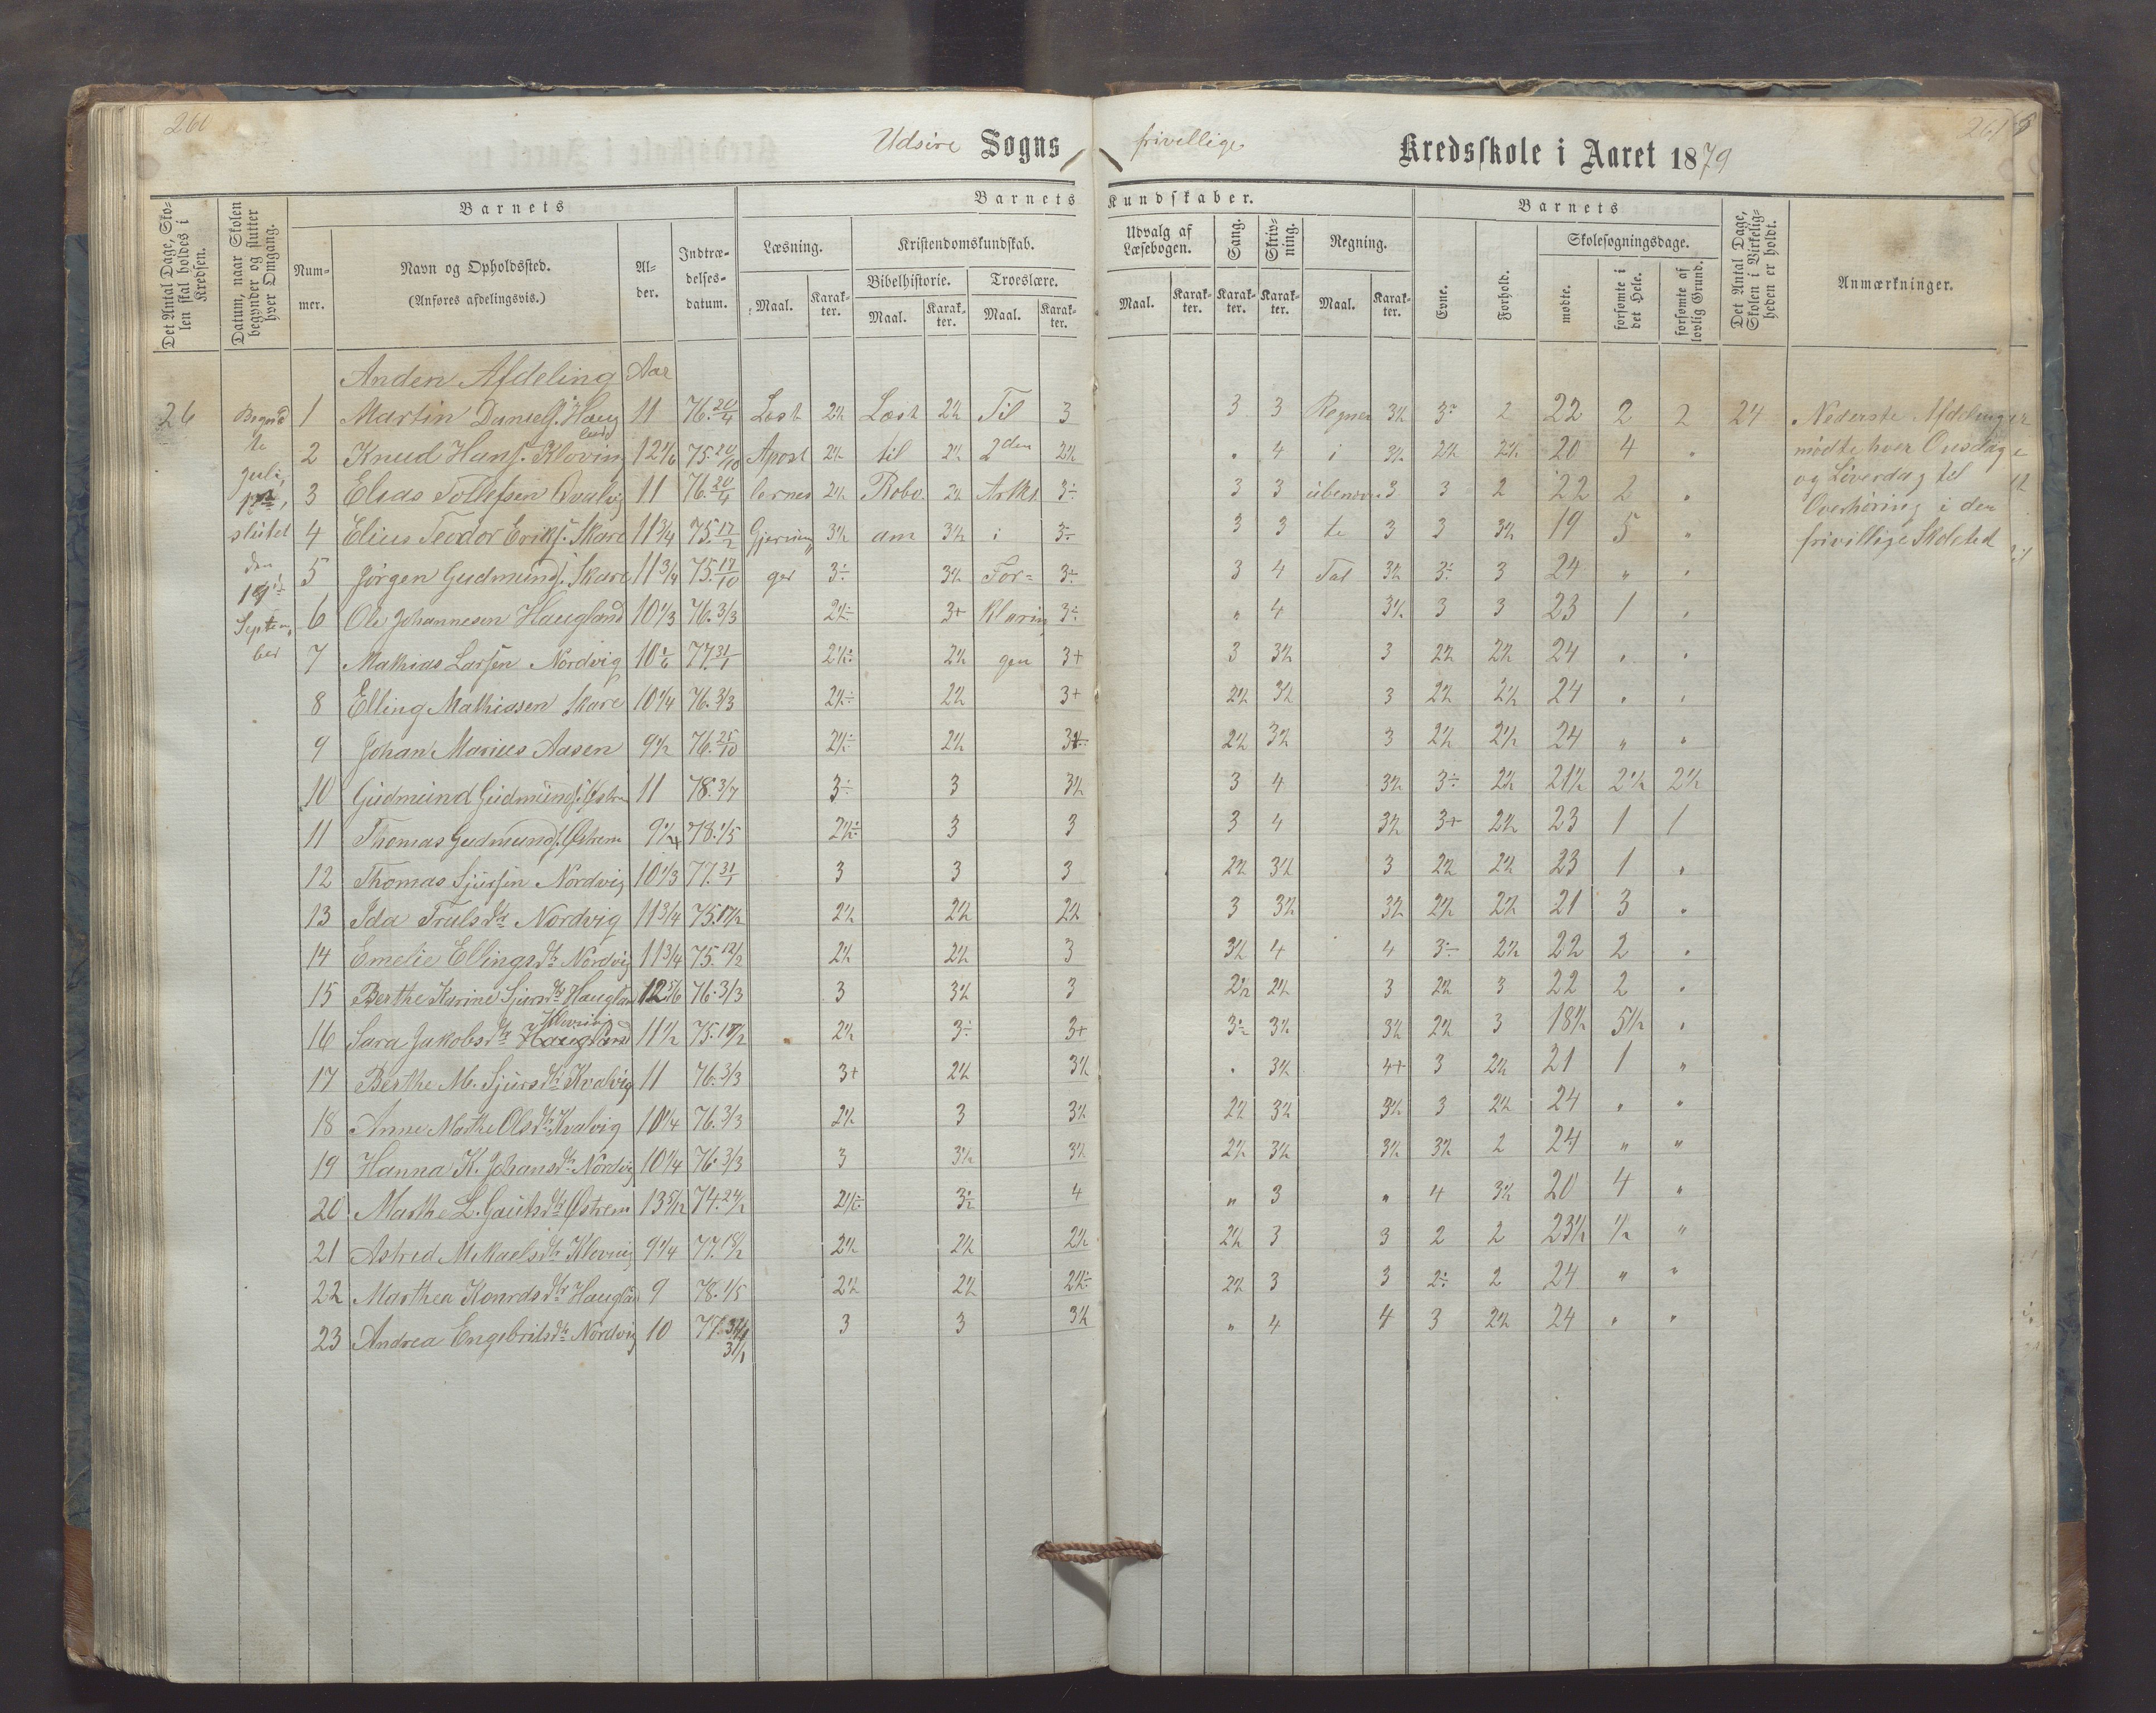 260
261
Udsire Sogns frivillige Kredsskole i Aaret 1879
Det Antal Dage, Skolen skal holdes i Kredsen.
Datum, naar Skolen begynder og slutter hver Omgang.
Barnets
Nummer.
Navn og Opholdssted.
(Anføres afdelingsvis.)
Alder.
Indtrædelsesdatum.
Barnets Kundskaber.
Læsning.
Maal.
Karakter.
Kristendomskundskab.
Bibelhistorie.
Maal.
Karakter.
Troeslære.
Maal.
Karakter.
Udvalg af Læsebogen.
Maal.
Karakter.
Sang.
Karakter.
Skrivning.
Karakter.
Regning.
Maal.
Karakter.
Barnets
Evne.
Forhold.
Skolesøgningsdage.
mødte.
forsømte i det Hele.
forsømte af lovlig Grund.
Det Antal Dage, Skolen i Virkeligheden er holdt.
Anmærkninger.
Anden Afdeling Aar
26 1 Martin Daniels. Haugland 11 76.20/4 Læst 2½ Læst 2½ Til 3 3 3 Regner 3½ 3÷ 2 22 2 2 24 Nederste Afdelinger
2 Knud Hans. Klovning 12 1/6 75.20/10 Apost 2½ til 2½ 2den 2½ " 4 i 3½ 2½ 2½ 20 4 " mødte hver Onsdag
3 Elias Tollefsen Qvalvig 11 76.20/4 lernes 2½ Robo 2½ Artkl. 3÷ 3 3 ubenævn 3 3 2 22 2 " og Løverdag til
4 Elius Teodor Eriks. Skare 11 3/4 75.17/2 Gjerning 3½ am 3½ i 3÷ 3 3 te 3 3 3½ 19 5 " Overhøring i den
5 Jørgen Gudmunds. Skare 11 3/4 75.17/10 ger 3÷ 3½ For= 3÷ 3 4 Tal 3½ 3÷ 3 24 " " frivillige Skolested
6 Ole Johannesen Haugland 10 1/3 76.3/3 2½÷ 3+ klarin 3÷ " 4 3½ 3 3 23 1 "
7 Mathias Larsen Nordvig 10 1/6 77.31/1 2½÷ 2½ gen 3+ 3 3½ 3 2½ 2½ 24 " "
8 Elling Mathiasen Skare 10 1/4 76.3/3 2½÷ 2½ 3+ 2½ 3½ 3 2½ 2½ 24 " "
9 Johan Marius Aasen 9½ 76.25/10 2½÷ 2½ 2½ 3½ 3 2½ 2½ 24 " "
10 Gudmund Gudmunds. Østrem 11 78.3/7 3÷ 3 3½ 3 4 3½ 3÷ 2½ 21½ 2½ 2½
11 Thomas Gudmunds. Østrem 78.1/5 2½÷ 3 3 3 4 3½ 3+ 2½ 23 1 1
12 Thomas Sjursen Nordvig 10 1/3 77.31/1 3 3 3 2½ 3½ 3 2½ 2½ 23 1 "
13 Ida Trulsdtr Nordvig 11 3/4 75.17/2 2½ 2½ 2½ 3 3½ 3½ 2½ 2½ 21 3 "
14 Emelie Ellingsdtr Nordvig 11 3/4 75.12/2 2½ 2½ 3 3½ 4 4 3÷ 2½ 22 2 "
15 Berthe Karine Sjursdtr Haugland 12 5/6 76.3/3 3 3½ 3 2½ 2½ 3 2½ 3 22 2 "
16 Sara Jakobsdtr Haugland Klovning 11½ 75.17/2 2½ 3÷ 3+ 3÷ 3½ 3½ 2½ 3 18½ 5½ "
17 Berthe M. Sjursdtr Kvalvig 11 76.3/3 3+ 2½ 3½ " 3½ 4+ 3 2½ 21 1 "
18 Anne Marthe Olsdtr Kvalvig 10 1/4 76.3/3 2½ 3 3½ 2½ 3½ 3½ 3 2½ 24 " "
19 Hanna K. Johansdtr Nordvig 10 1/4 76.3/3 3 3½ 3½ 2½ 3½ 3½ 3½ 2 24 " "
20 Marthe L. Gautsdtr Østrem 13 5/12 74.24/2 2½÷ 3÷ 4 " 3 " 4 3½ 20 4 "
21 Astred Mikaelsdtr Klovnig 9 1/4 77.18/2 2½ 2½ 2½ 2½ 3 3 2 2 23½ ½ "
22 Marthea Konrdsdtr Haugla 9 78.1/5 2½ 2½ 2½÷ 2½ 3 3 2÷ 2 24 " "
23 Andrea Engebritsdtr Nordvig 10 77.31/1 3 3 3½ " 4 4 3 2½ 24 " "
Begynd
te
Juli,
sluttet
den
Septem
ber